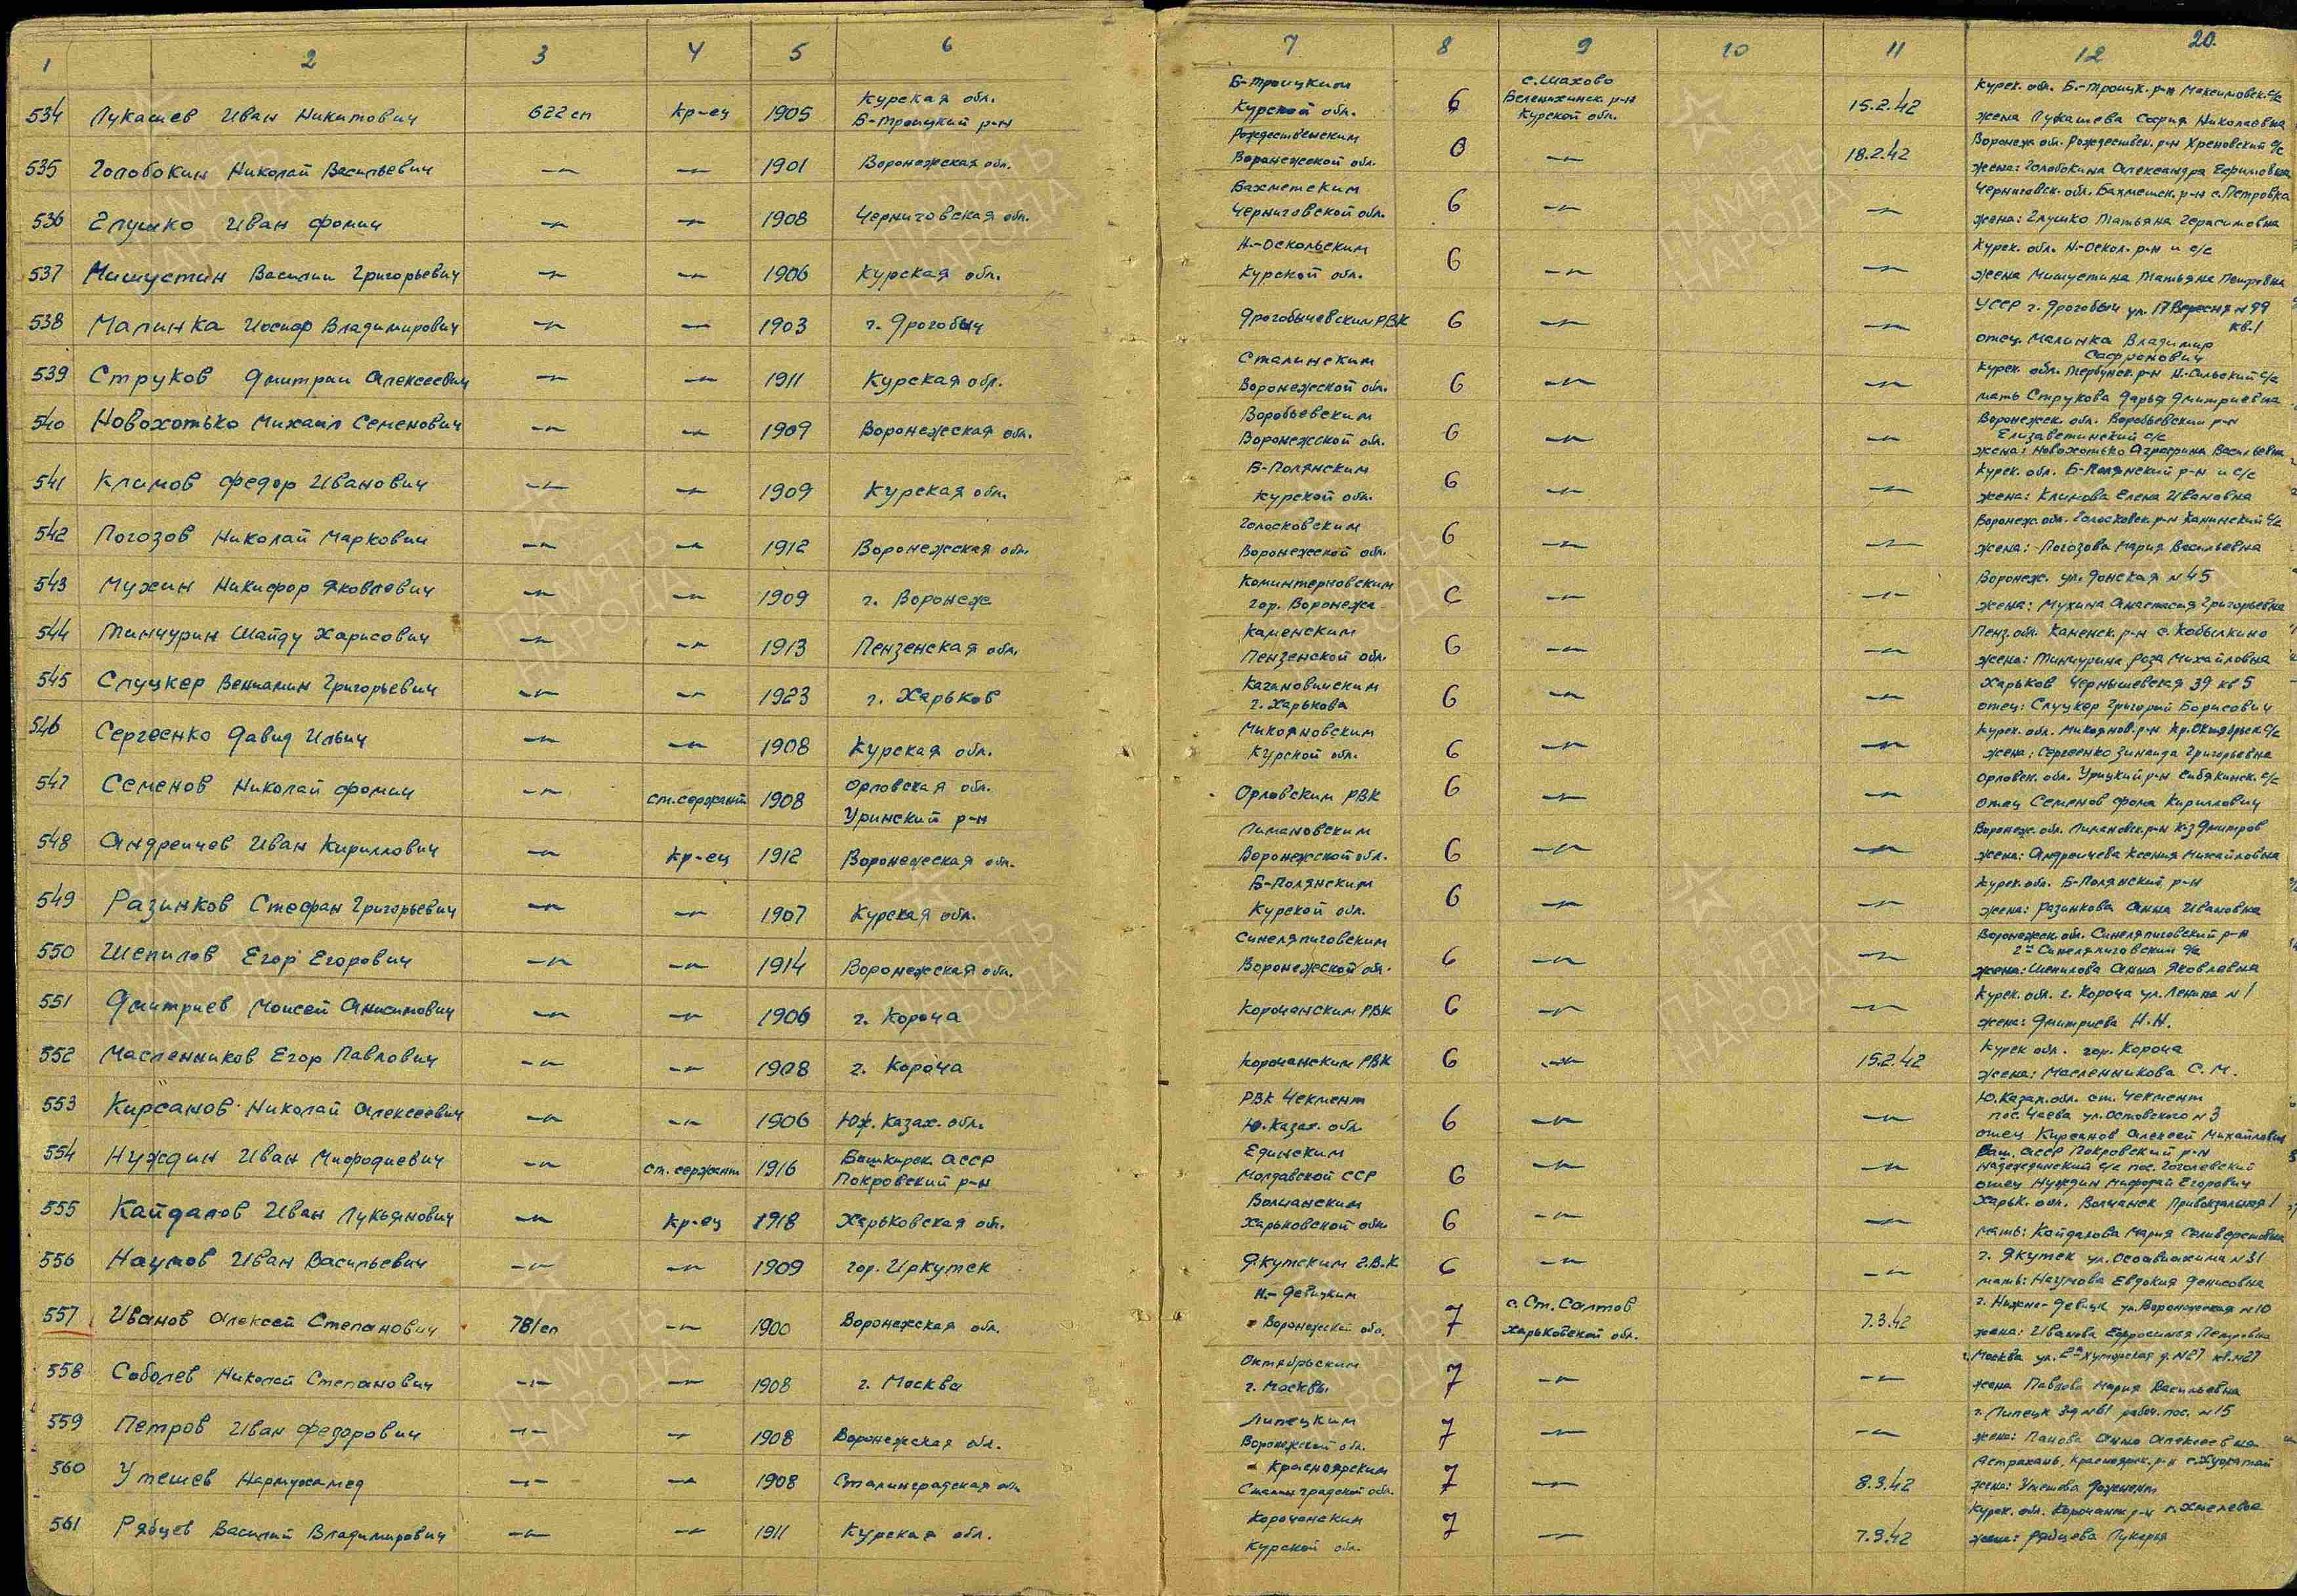 20.
1 2 3 4 5 6 7 8 9 10 11 12
534 Лукашев Иван Никитович 622 сп кр-ец 1905 Курская обл. Б-Троицкий р-н Б-Троицким Курской обл. 6 с. Шахово Беленихинск. р-н Курской обл. 15.2.42 Курск. обл. Б.-Троицк. р-н Максимовск. с/с
жена Лукашева София Николаевна
535 Голобокин Николай Васильевич —"— —"— 1901 Воронежская обл. Рождественским Воронежской обл. 6 —"— 18.2.42 Воронеж. обл. Рождествен. р-н Хреновский с/с
жена: Голобокина Александра Ефимовна
536 Глушко Иван Фомич —"— —"— 1908 Черниговская обл. Бахметским Черниговской обл. 6 —"— —"— Черниговск. обл. Бахметск. р-н с. Петровка
жена: Глушко Татьяна Герасимовна
537 Мишустин Василий Григорьевич —"— —"— 1906 Курская обл. Н.-Оскольским Курской обл. 6 —"— —"— Курск. обл. Н-Оскол. р-н и с/с
жена Мишустина Татьяна Петровна
538 Малинка Иосиф Владимирович —"— —"— 1903 г. Дрогобыч Дрогобычевским РВК 6 —"— —"— УССР г. Дрогобыч ул. 17 Вересня №99 кв.1
отец. Малинка Владимир Сафронович
539 Струков Дмитрий Алексеевич —"— —"— 1911 Курская обл. Сталинским Воронежской обл. 6 —"— —"— Курск. обл. Тербунск. р-н Н.-Сильский с/с
мать Струкова Дарья Дмитриевна
540 Новохотько Михаил Семенович —"— —"— 1909 Воронежская обл. Воробьевским Воронежской обл. 6 —"— —"— Воронежск. обл. Воробьевский р-н
Елизаветинский с/с
жена: Новохотько Аграфина Васильевна
541 Климов Федор Иванович —"— —"— 1909 Курская обл. Б-Полянским Курской обл. 6 —"— —"— Курск. обл. Б-Полянский р-н и с/с
жена: Климова Елена Ивановна
542 Погозов Николай Маркович —"— —"— 1912 Воронежская обл. Голосковским Воронежской обл. 6 —"— —"— Воронеж. обл. Голосковск. р-н Канинский с/с
жена: Погозова Мария Васильевна
543 Мухин Никифор Яковлевич —"— —"— 1909 г. Воронеж Коминтерновским гор. Воронежа 6 —"— —"— Воронеж. ул. Донская №45
жена: Мухина Анастасия Григорьевна
544 Тинчурин Шайду Харисович —"— —"— 1913 Пензенская обл. Каменским Пензенской обл. 6 —"— —"— Пенз. обл. Каменск. р-н с. Кобылкино
жена: Тинчурина Роза Михайловна
545 Слуцкер Вениамин Григорьевич —"— —"— 1923 г. Харьков Кагановичским г. Харькова 6 —"— —"— Харьков Чернышевская 39 кв 5
отец: Слуцкер Григорий Борисович
546 Сергеенко Давид Ильич —"— —"— 1908 Курская обл. Микояновским Курской обл. 6 —"— —"— Курск. обл. Микоянов. р-н Кр. Октябрьск. с/с
жена: Сергеенко Зинаида Григорьевна
547 Семенов Николай Фомич —"— ст. сержант 1908 Орловская обл. Урицкий р-н Орловским РВК 6 —"— —"— Орловск. обл. Урицкий р-н Сибякинск. с/с
отец Семенов Фома Кириллович
548 Андреичев Иван Кириллович —"— кр-ец 1912 Воронежская обл. Лимановским Воронежской обл. 6 —"— —"— Воронеж. обл. Лимановск. р-н к-з Дмитров
жена: Андреичева Ксения Михайловна
549 Разинков Стефан Григорьевич —"— —"— 1907 Курская обл. Б-Полянским Курской обл. 6 —"— —"— Курск. обл. Б-Полянский р-н
жена: Разинкова Анна Ивановна
550 Шепилов Егор Егорович —"— —"— 1914 Воронежская обл. Синеляпиговским Воронежской обл. 6 —"— —"— Воронежск. обл. Синеляпиговский р-н
2й Синеляпиговский с/с
жена: Шепилова Анна Яковлевна
551 Дмитриев Моисей Анисимович —"— —"— 1906 г. Короча Корочанским РВК 6 —"— —"— Курск. обл. г. Короча ул. Ленина №1
жена: Дмитриева Н.Н.
552 Масленников Егор Павлович —"— —"— 1908 г. Короча Корочанским РВК 6 —"— 15.2.42 Курск обл. гор. Короча
жена: Масленникова С.М.
553 Кирсанов Николай Алексеевич —"— —"— 1906 Юж. Казах. обл. РВК Чекмент Ю. Казах. обл. 6 —"— —"— Ю. Казах. обл. ст. Чекмент
пос. Чаева ул. Остовского №3
отец Кирсанов Алексей Михайлович
554 Нуждин Иван Мифодиевич —"— ст. сержант 1916 Башкирск. АССР Покровский р-н Единским Молдавской ССР 6 —"— —"— Баш. АССР Покровский р-н
Надеждинский с/с пос. Гоголевский
отец Нуждин Мифодий Егорович
555 Кайдалов Иван Лукьянович —"— кр-ец 1918 Харьковская обл. Волчанским Харьковской обл. 6 —"— —"— Харьк. обл. Волчанск Привокзальная 1
мать: Кайдалова Мария Селиверстовна
556 Наумов Иван Васильевич —"— —"— 1909 гор. Иркутск Якутским Г.В.К 6 —"— —"— г. Якутск ул. Осоавиахима №31
мать: Наумова Евдокия Денисовна
557 Иванов Алексей Степанович 781 сп —"— 1900 Воронежская обл. Н.-Девицким Воронежской обл. 7 с. Ст. Салтов Харьковской обл. 7.3.42 г. Нижне-Девицк ул. Воронежская №10
жена: Иванова Ефросинья Петровна
558 Соболев Николай Степанович —"— —"— 1908 г. Москва Октябрьским г. Москвы 7 —"— —"— г. Москва ул. 2я Хуторская д. №27 кв. №27
жена Павлова Мария Васильевна
559 Петров Иван Федорович —"— —"— 1908 Воронежская обл. Липецким Воронежской обл. 7 —"— —"— г. Липецк З-д №61 рабоч. пос. №15
жена: Панова Анна Алексеевна
560 Утешев Нармухамед —"— —"— 1908 Сталинградская обл. Красноярским Сталинградской обл. 7 —"— 8.3.42 Астрахань, Красноярск. р-н
жена: Утешева
561 Рябцев Василий Владимирович —"— —"— 1911 Курская обл. Корочанским Курской обл. 7 —"— 7.3.42 Курск. обл. Корочанск р-н п. Хмелевое
жена: Рябцева Лукерья
ПАМЯТЬ НАРОДА